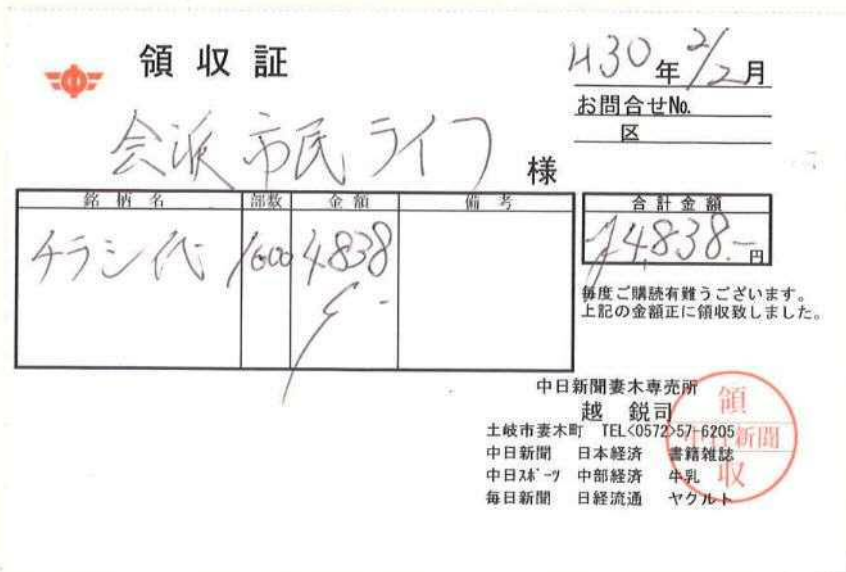 領収証
H30年2/2月
お問合せNo.
区
会派 市民ライフ 様
銘柄名 部数 金額 備考
チラシ代 1600 4838
合計金額
¥4,838.-円
毎度ご購読有難うございます。
上記の金額正に領収致しました。
中日新聞妻木専売所
越 鋭司
土岐市妻木町 TEL<0572>57-6205
中日新聞 日本経済 書籍雑誌
中日スポーツ 中部経済 牛乳
毎日新聞 日経流通 ヤクルト
領
中日新聞
収